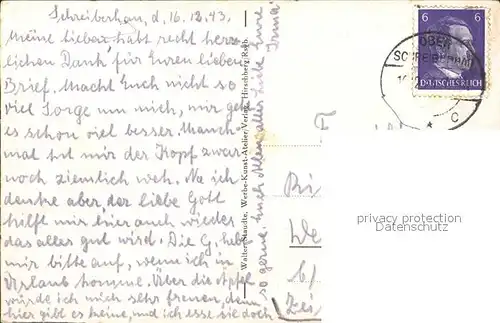 Schreiberhau, d. 16.12.43.
Meine lieben, habt recht herz-
lichen Dank für Euren lieben
Brief. Macht Euch nicht so
viel Sorge um mich, mir geht
es schon viel besser. Manch-
mal tut mir der Kopf zwar
noch ziemlich weh. Na ich
denke aber, der liebe Gott
hilft mir hier auch wieder
das alles gut wird. Die G. heb
mir bitte auf, wenn ich in
Urlaub komme. Über die Äpfel
würde ich mich sehr freuen, denn
hier gibt es keine, und ich esse sie doch
so gerne. Euch Allen alles Liebe Eure
Irma
Walter Staudte, Werbe-Kunst-Atelier, Verlag, Hirschberg/Rsgb.
6 6
DEUTSCHES REICH
OBER
SCHREIBERHAU
c
privacy protection
Datenschutz